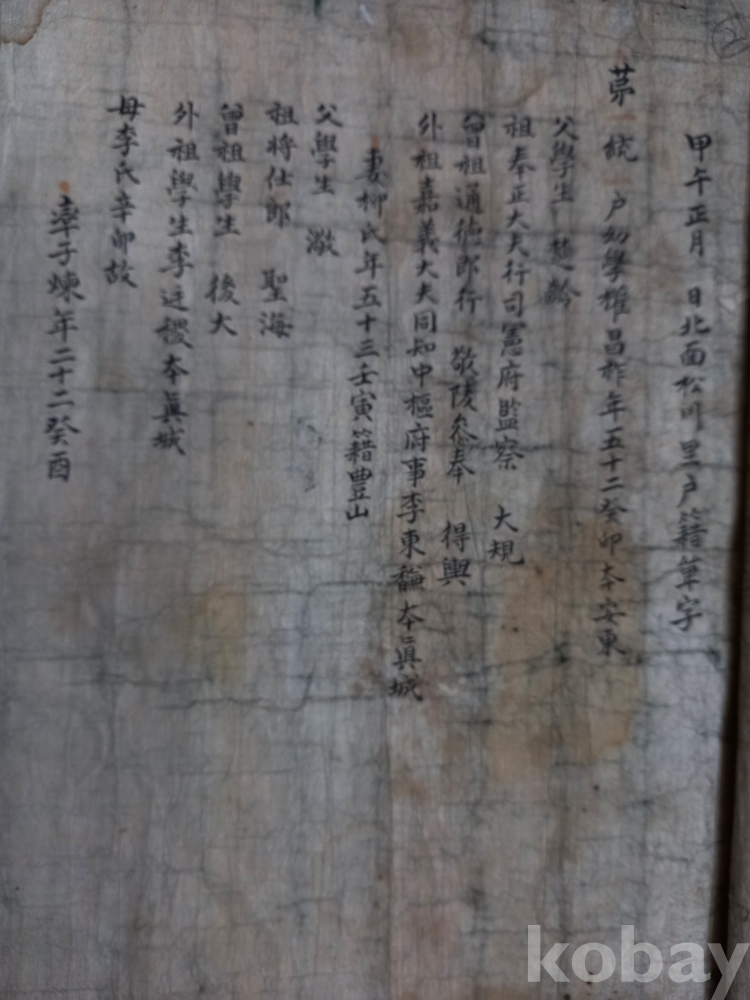 甲午正月 日北面松川里户籍單字
苐一統一户幼學權昌柞年五十二癸卯本安東
父學生 齡
祖奉正大夫行司憲府監察 大規
曾祖通德郎行 敬陵叅奉 得輿
外祖嘉義大夫同知中樞府事李東 本眞城
妻柳氏年五十三壬寅籍豊山
父學生 潡
祖將仕郎 聖海
曾祖學生 後大
外祖學生李廷稷本眞城
母李氏辛卯故
率子煉年二十二癸酉
kobay